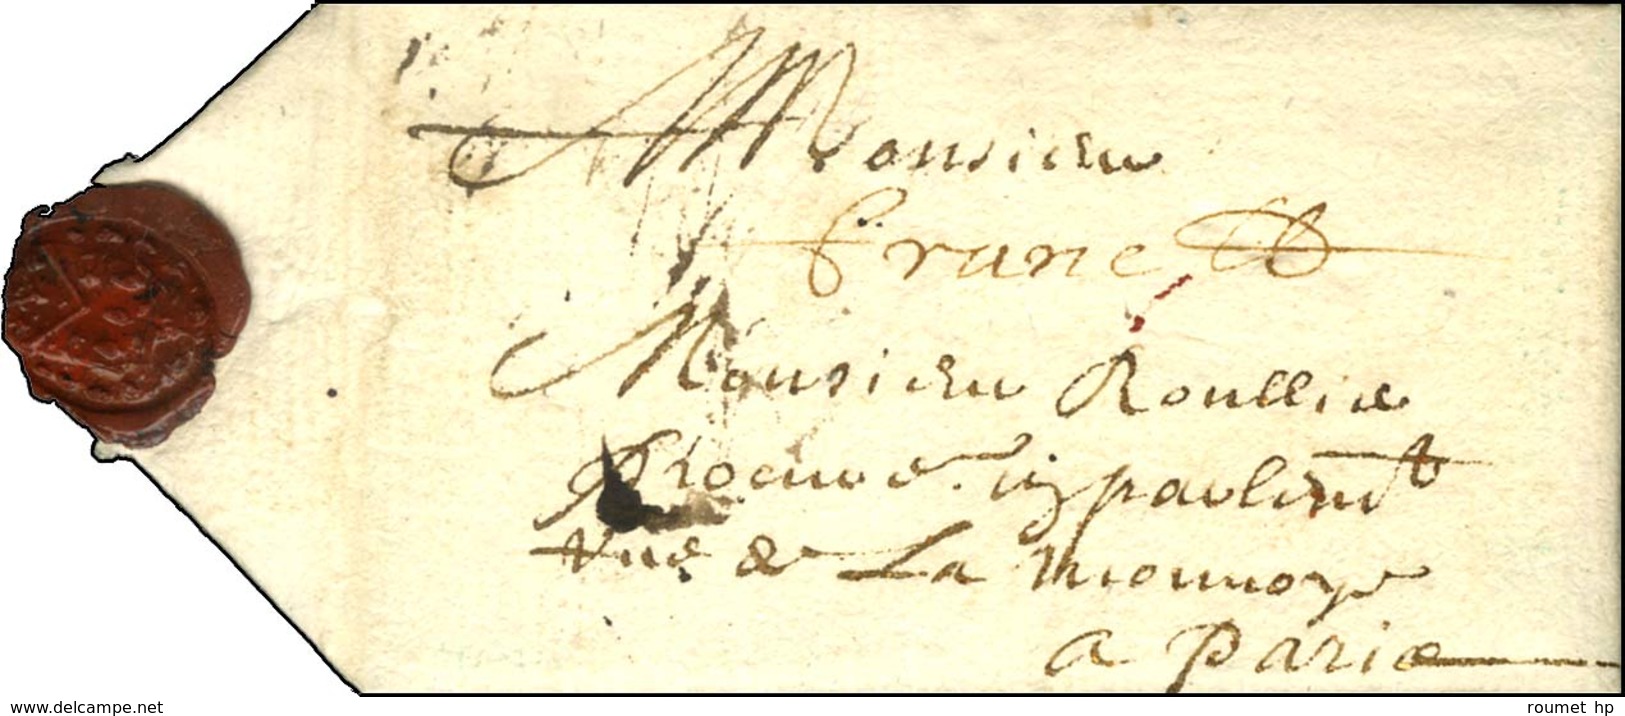 Monsieur
franc
Monsieur Roullie
procureur en parlemt
rue de La monnoye
a Paris
www.delcampe.net
roumet hp